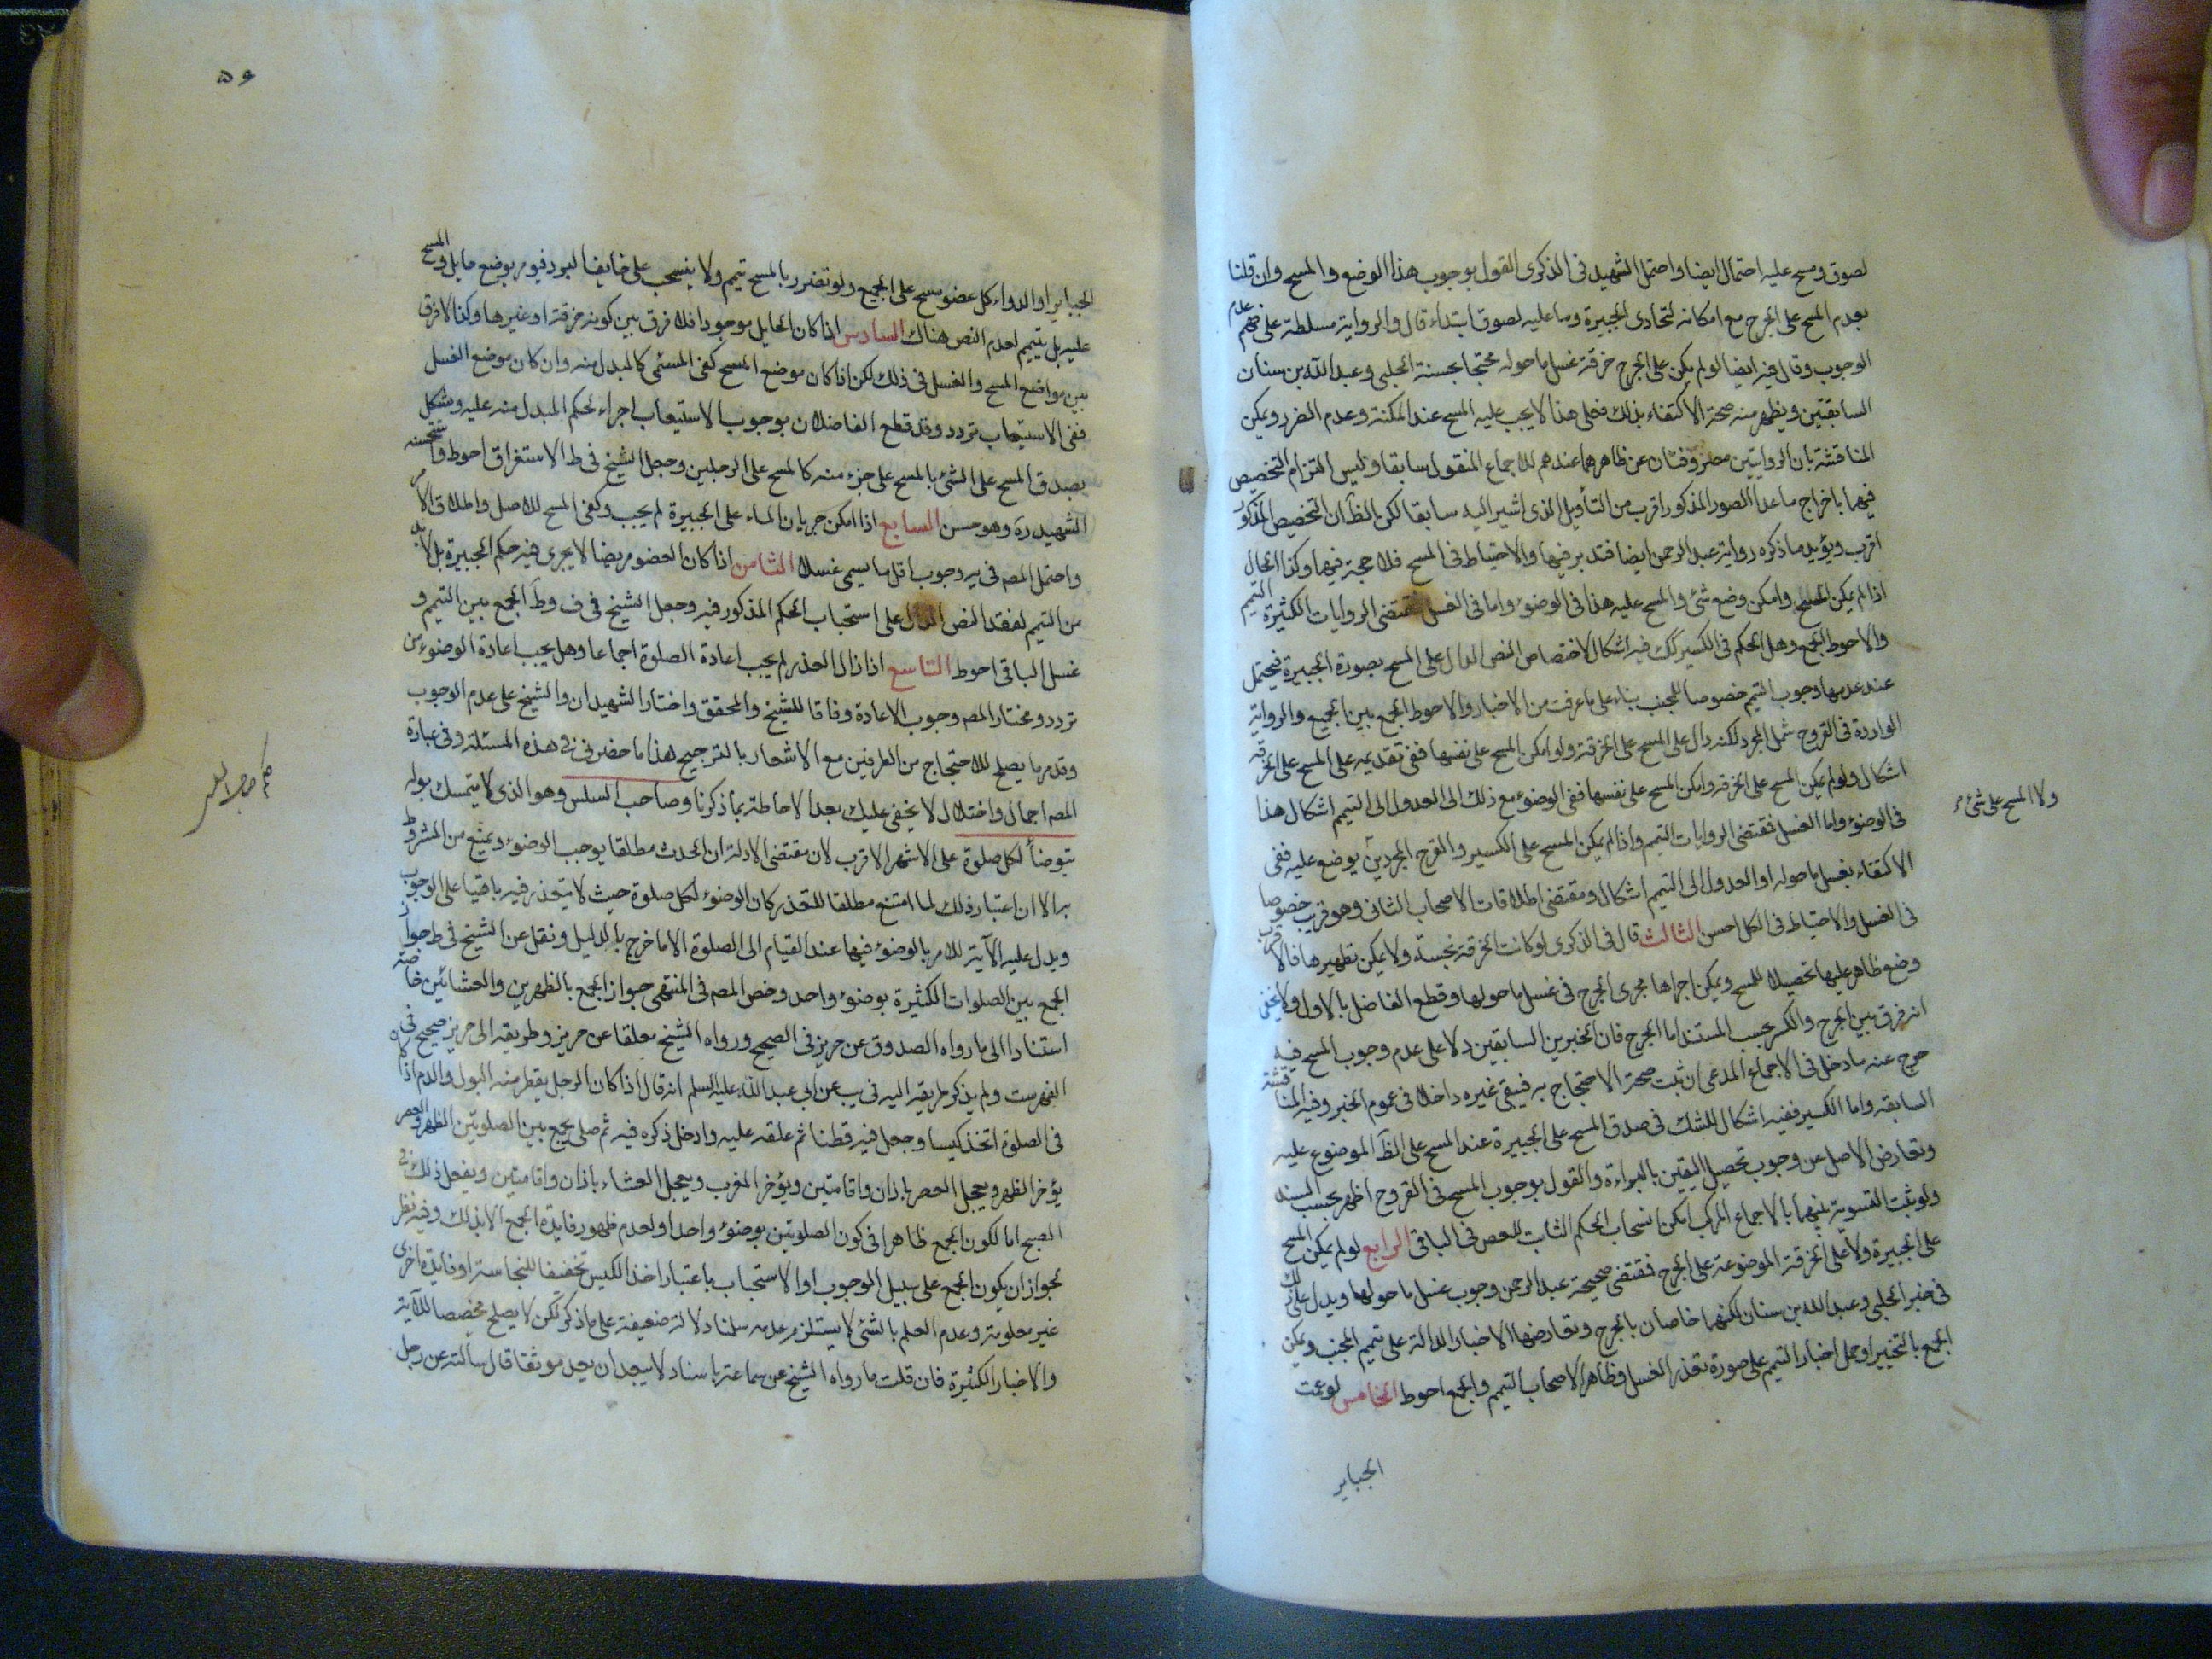 لصوق ومسح عليه احتمال ايضا واحتمل الشهيد فى الذكرى القول بوجوب هذا الوضع والمسح وان قلنا
بعدم المسح على الجرح مع امكانه لتحاذى الجبيرة وما عليه لصوق ابتداء قال والرواية مسلطة على فهم عدم
الوجوب وقال فيه ايضا لو لم يكن على الجرح خرقة غسل ما حوله محتجا بحسنة الحلبى وعبد الله بن سنان
السابقتين ويظهر منه صحة الاكتفاء بذلك فعلى هذا لا يجب عليه المسح عند المكنة وعدم الضرر ويمكن
المناقشة بان الروايتين مصروفتان عن ظاهرهما عندهم للاجماع المنقول سابقا وليس التزام التخصيص
فيهما باخراج ماعدا الصور المذكور اقرب من التأويل الذى اشير اليه سابقا لكن الظ ان التخصيص المذكور
اقرب ويؤيد ما ذكره رواية عبد الرحمن ايضا فتدبر فيها والاحتياط فى المسح فلا حجة فيها وكذا الحال
اذا لم يكن المسح وامكن وضع شئ والمسح عليه هذا فى الوضوء واما فى الغسل فمقتضى الروايات الكثيرة التيمم
والاحوط الجمع وهل الحكم فى الكسير كك فيه اشكال لاختصاص النص الدال على المسح بصورة الجبيرة فيحتمل
عند عدمها وجوب التيمم خصوصا للجنب بناء على ما عرفت من الاخبار والاحوط الجمع بين الجميع والرواية
الواردة فى القروح شمل المجرد لكنه دال على المسح على الخرقة ولو امكن المسح على نفسها ففى تقديمه على المسح على الخرقة
اشكال ولو لم يكن المسح على الخرقة وامكن المسح على نفسها ففى الوضوء مع ذلك الى العدول الى التيمم اشكال هذا
ولا المسح على شئ
فى الوضوء واما الغسل فمقتضى الروايات التيمم واذا لم يمكن المسح على الكسير والقرح المجردين يوضع عليه ففى
الاكتفاء بغسل ما حوله او العدول الى التيمم اشكال ومقتضى اطلاقات الاصحاب الثانى وهو قريب خصوصا
فى الغسل والاحتياط فى الكل احسن الثالث قال فى الذكرى لو كانت الخرقة نجسة ولا يمكن تطهيرها فالاقرب
وضع ظاهر عليها تحصيلا للمسح ويمكن اجراها مجرى الجرح فى غسل ما حولها وقطع الفاضل بالاول ولا يخفى
انه فرق بين الجرح والكسر بحسب المستند اما الجرح فان الخبرين السابقين دلا على عدم وجوب المسح فيه
خرج عنه ما دخل فى الاجماع المدعى ان ثبت صحة الاحتجاج به فيبقى غيره داخلا فى عموم الخبر وفيه المناقشة
السابقة واما الكسير ففيه اشكال للشك فى صدق المسح على الجبيرة عند المسح على الظ الموضوع عليه
وتعارض الاصل عن وجوب تحصيل اليقين بالبراءة والقول بوجوب المسح فى القروح اظهر بحسب السند
ولو ثبت التسوية بينهما بالاجماع المركب امكن انسحاب الحكم الثابت للبعض فى الباقى الرابع لو لم يمكن المسح
على الجبيرة ولا على الخرقة الموضوعة على الجرح فمقتضى صحيحة عبد الرحمن وجوب غسل ما حولها ويدل على ذلك
فى خبر الحلبى وعبد الله بن سنان لكنهما خاصان بالجرح وتعارضها الاخبار الدالة على تيمم الجنب ويمكن
الجمع بالتخيير او حمل اخبار التيمم على صورة تعذر الغسل وظاهر الاصحاب التيمم والجمع احوط الخامس لو عمت
الجباير
٥٦
الجباير او الدواء كل عضو مسح على الجميع ولو تضرر بالمسح تيمم ولا ينسحب على خايف البرد فيؤمر بوضع حايل والمسح
عليه بل يتيمم لعدم النص هناك السادس اذا كان الحايل موجودا فلا فرق بين كونه خرقة او غيرها وكذا لا فرق
بين مواضع المسح والغسل فى ذلك لكن اذا كان موضع المسح كفى المسمى كالمبدل منه وان كان موضع الغسل
ففى الاستيعاب تردد وقد قطع الفاضلان بوجوب الاستيعاب اجراء لحكم المبدل منه عليه ويشكل
بصدق المسح على الشئ بالمسح على جزء منه كالمسح على الرجلين وجعل الشيخ فى ط الاستغراق احوط واستحسنه
الشهيد ره وهو حسن السابع اذا امكن جريان الماء على الجبيرة لم يجب وكفى المسح للاصل واطلاق الامر
واحتمل المص فى يه وجوب اقل ما يسمى غسلا الثامن اذا كان العضو مريضا لا يجرى فيه حكم الجبيرة بل لابد
من التيمم لفقد النص الدال على استحباب الحكم المذكور فيه وجعل الشيخ فى ف وط الجمع بين التيمم و
غسل الباقى احوط التاسع اذا زال العذر لم يجب اعادة الصلوة اجماعا وهل يجب اعادة الوضوء من
تردد ومختار المص وجوب الاعادة وفاقا للشيخ والمحقق واختار الشهيدان والشيخ على عدم الوجوب
وقد مر ما يصلح للاحتجاج من الطرفين مع الاشعار بالترجيح هذا ما حضرنى فى هذه المسئلة وفى عبارة
المص اجمال واختلال لا يخفى عليك بعد الاحاطة بما ذكرنا وصاحب السلس وهو الذى لا يتمسك بوله
يتوضأ لكل صلوة على الاشهر الاقرب لان مقتضى الادلة ان الحدث مطلقا يوجب الوضوء ويمنع من المشروط
به الا ان اعتبار ذلك لما امتنع مطلقا للتعذر كان الوضوء لكل صلوة حيث لا يتعذر فيه باقيا على الوجوب
ويدل عليه الآية للامر بالوضوء فيها عند القيام الى الصلوة الا ما خرج بالدليل ونقل عن الشيخ فى ط جواز
الجمع بين الصلوات الكثيرة بوضوء واحد وخص المص فى المنتهى جواز الجمع بالظهرين والعشائين خاصة
استنادا الى ما رواه الصدوق عن حريز فى الصحيح ورواه الشيخ معلقا عن حريز وطريقه الى حريز صحيح فى
الفهرست ولم يذكر طريقه اليه فى يب عن ابى عبد الله عليه السلم انه قال اذا كان الرجل يقطر منه البول والدم اذا كان
فى الصلوة اتخذ كيسا وجعل فيه قطنا ثم علقه عليه وادخل ذكره فيه ثم صلى يجمع بين الصلوتين الظهر والعصر
يؤخر الظهر ويعجل العصر باذان واقامتين ويؤخر المغرب ويعجل العشاء باذان واقامتين ويفعل ذلك فى
الصبح اما لكون الجمع ظاهرا فى كون الصلوتين بوضوء واحد او لعدم ظهور فايدة الجمع الا بذلك وفيه نظر
لجواز ان يكون الجمع على سبيل الوجوب او الاستحباب باعتبار اخذ الكيس تخفيفا للنجاسة او فايدة اخرى
غير معلومة وعدم العلم بالشئ لا يستلزم عدمه سلمنا دلالة ضعيفة على ما ذكر لكن لا يصلح مخصصا للآية
والاخبار الكثيرة فان قلت ما رواه الشيخ عن سماعة باسناد لا يبعد ان يعد موثقا قال سألته عن رجل